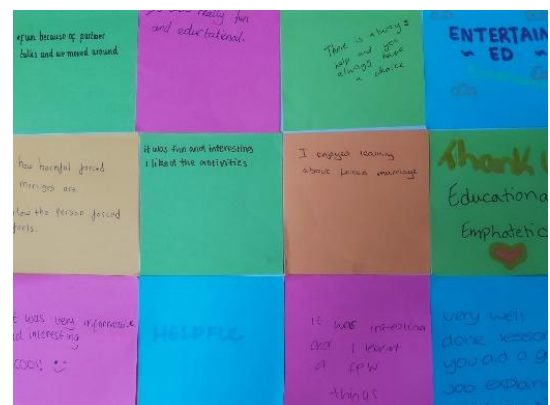 •fun because of partner
talks and we moved around
really fun
and educational.
There is always
help and you
always have
a choice
ENTERTAIN
~ ED ~
how harmful forced
are.
How the person forced
feels.
it was fun and interesting
i liked the activities
I enjoyed learning
about forced marriage
Thank
Educationa
Emphatetic
t was very informative
nd interesting
COOL! :)
HELPFUL
it was interesting
and I learnt
a few
things
very well
done lesson
you did a g
Job explain